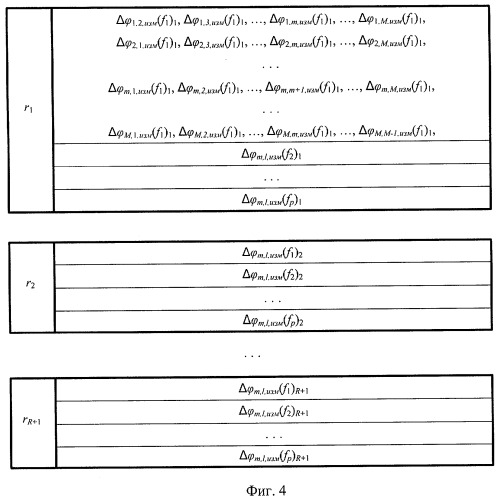 r₁
Δφ₁,₂,изм(f₁)₁, Δφ₁,₃,изм(f₁)₁, …, Δφ₁,m,изм(f₁)₁, …, Δφ₁,M,изм(f₁)₁,
Δφ₂,₁,изм(f₁)₁, Δφ₂,₃,изм(f₁)₁, …, Δφ₂,m,изм(f₁)₁, …, Δφ₂,M,изм(f₁)₁,
. . .
Δφm,1,изм(f₁)₁, Δφm,2,изм(f₁)₁, …, Δφm,m+1,изм(f₁)₁, …, Δφm,M,изм(f₁)₁,
. . .
ΔφM,1,изм(f₁)₁, ΔφM,2,изм(f₁)₁, …, ΔφM,m,изм(f₁)₁, …, ΔφM,M-1,изм(f₁)₁,
Δφm,l,изм(f₂)₁
. . .
Δφm,l,изм(fp)₁
r₂
Δφm,l,изм(f₁)₂
Δφm,l,изм(f₂)₂
. . .
Δφm,l,изм(fp)₂
. . .
rR+1
Δφm,l,изм(f₁)R+1
Δφm,l,изм(f₂)R+1
. . .
Δφm,l,изм(fp)R+1
Фиг. 4